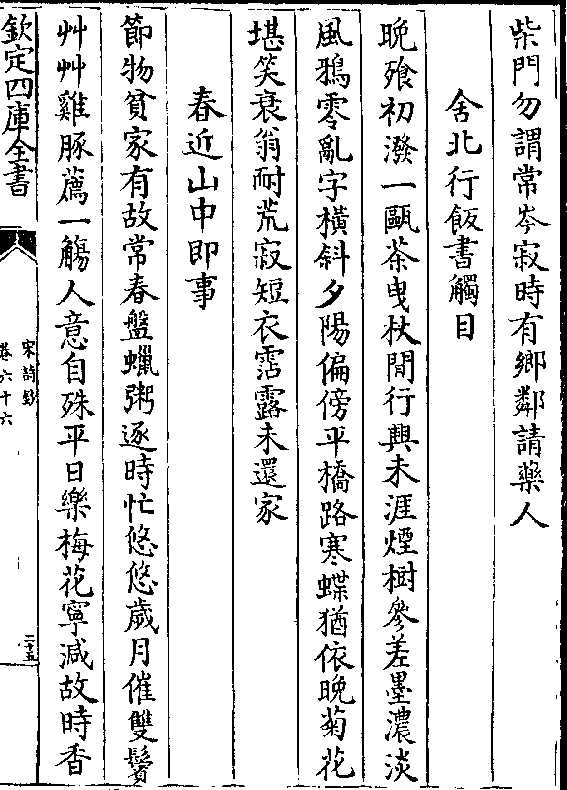 柴門勿謂常岑寂時有鄉鄰請藥人
舍北行飯書觸目
晚飱初潑一甌茶曳杖閒行興未涯煙樹參差墨濃淡
風鴉零亂字橫斜夕陽偏傍平橋路寒蝶猶依晚菊花
堪笑衰翁耐荒寂短衣霑露未還家
春近山中即事
節物貧家有故常春盤蠟粥逐時忙悠悠歲月催雙鬢
艸艸雞豚薦一觴人意自殊平日樂梅花寧減故時香
欽定四庫全書
宋詩鈔
卷六十六
二十五